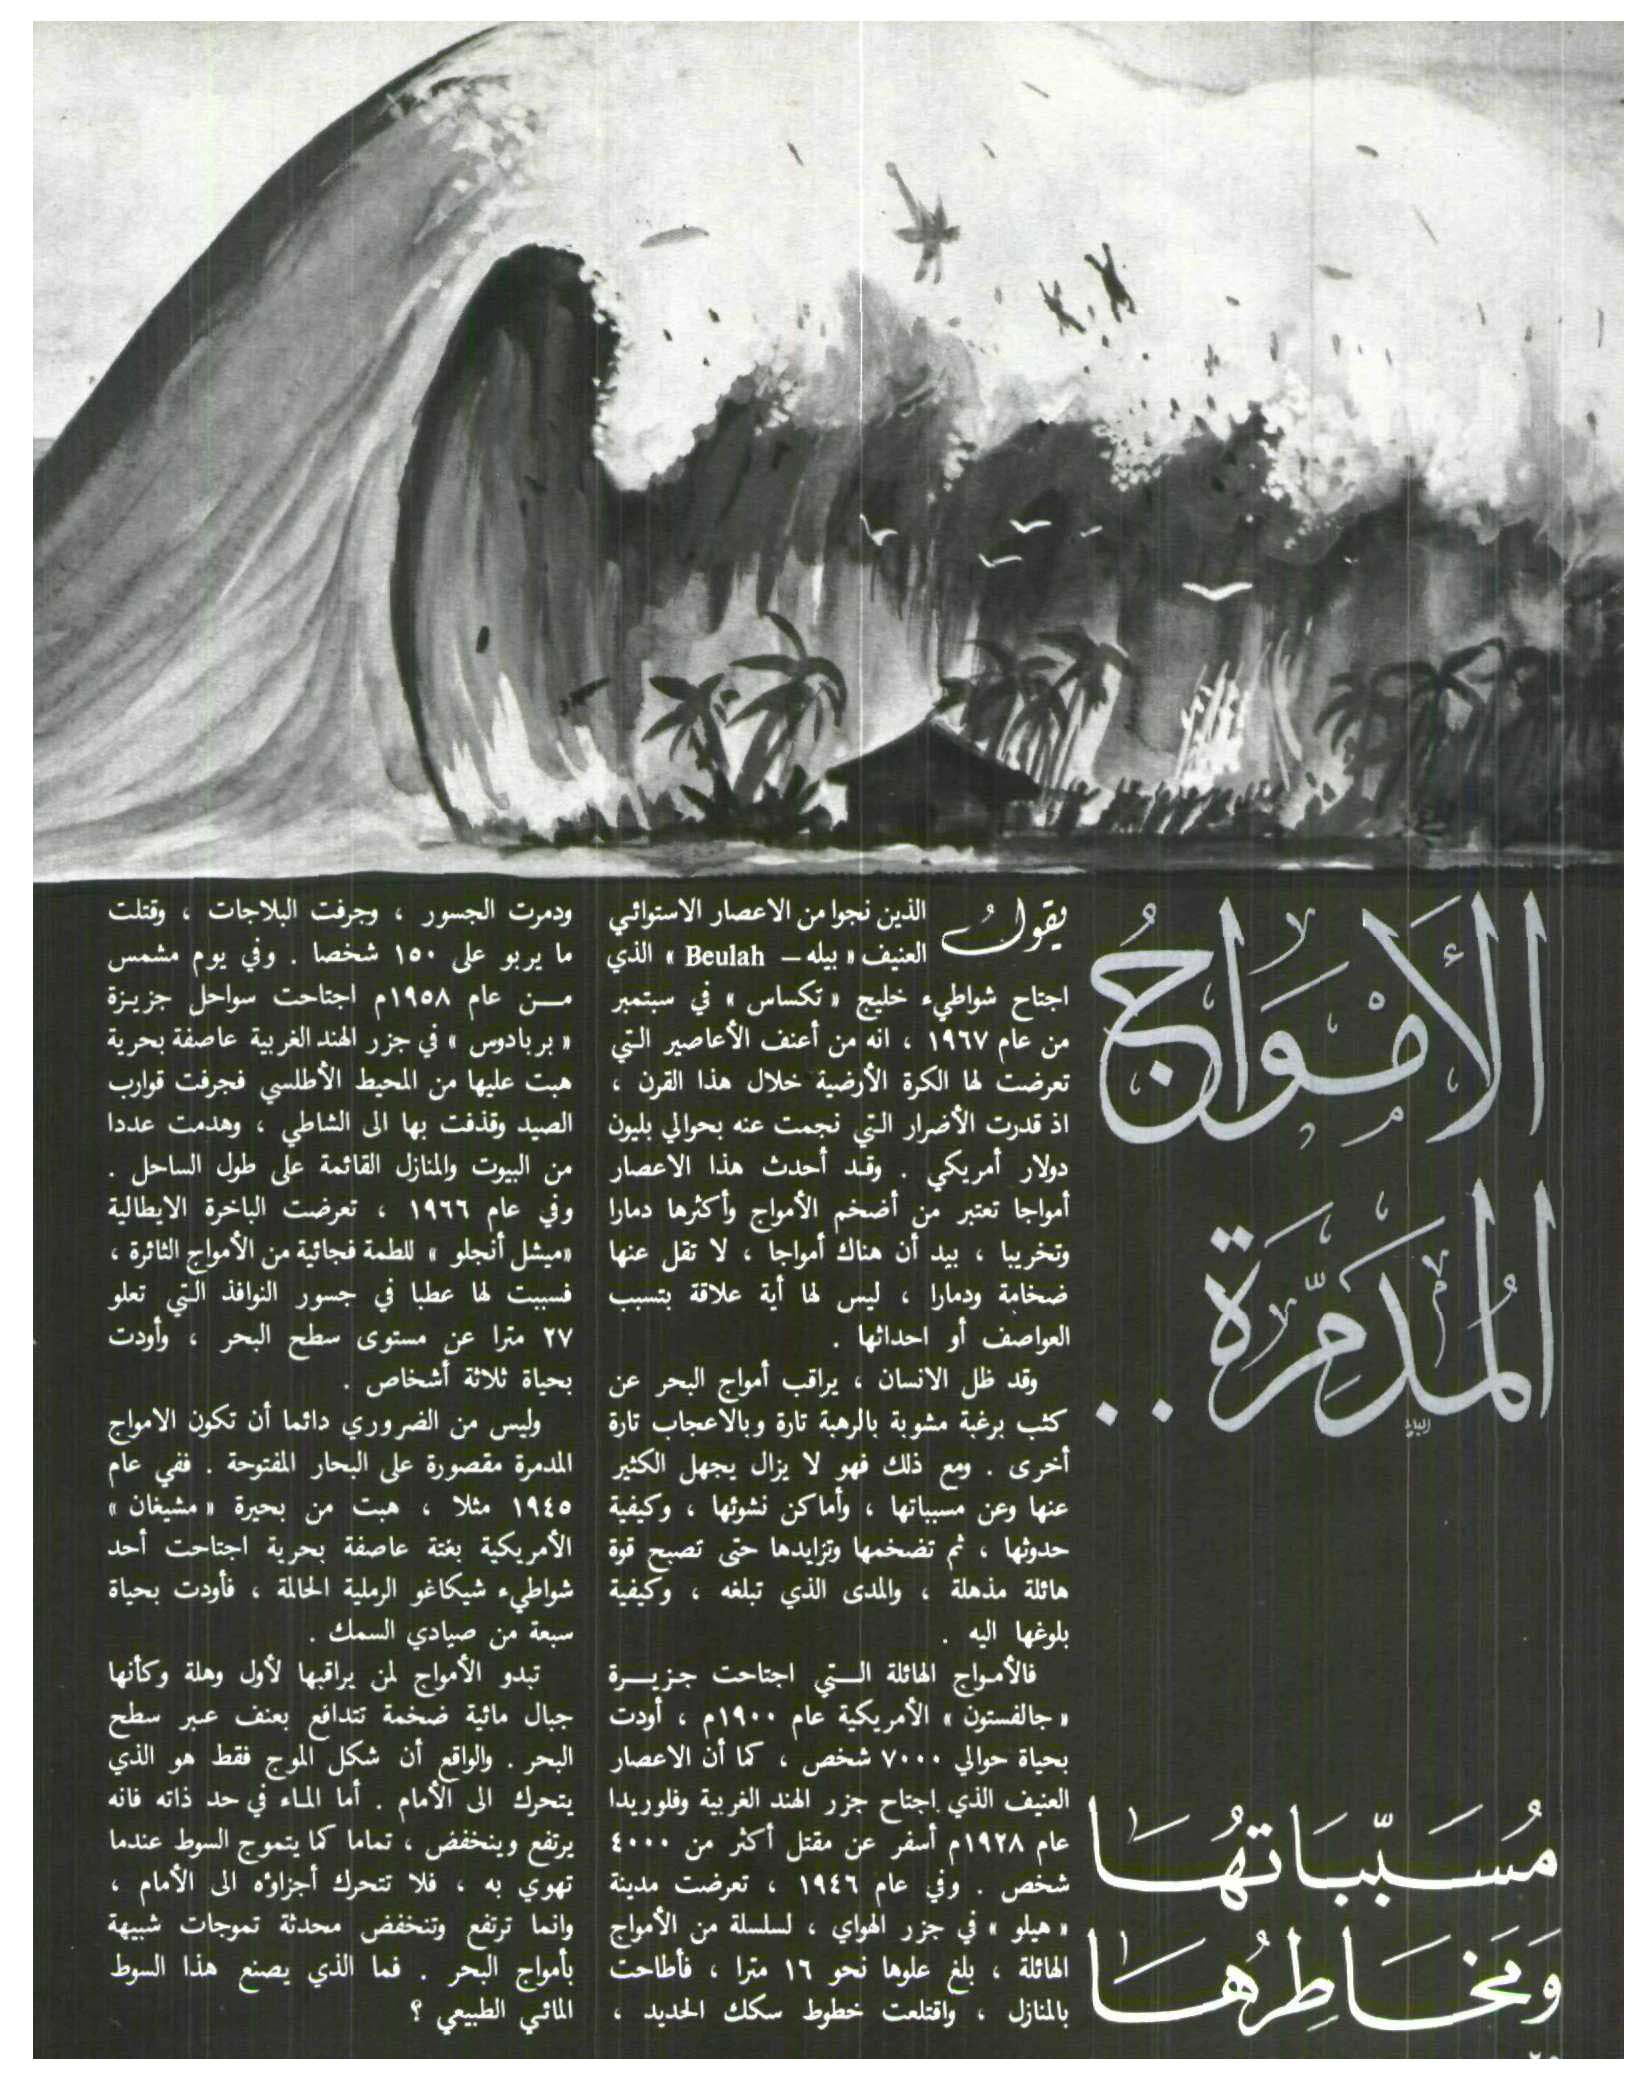 الأمواج
المدمرة ..
مسبباتها
ومخاطرها
يقول الذين نجوا من الاعصار الاستوائي
العنيف « بيله – Beulah » الذي
اجتاح شواطيء خليج « تكساس » في سبتمبر
من عام ١٩٦٧ ، انه من أعنف الأعاصير التي
تعرضت لها الكرة الأرضية خلال هذا القرن ،
اذ قدرت الأضرار التي نجمت عنه بحوالي بليون
دولار أمريكي . وقد أحدث هذا الاعصار
أمواجا تعتبر من أضخم الأمواج وأكثرها دمارا
وتخريبا ، بيد أن هناك أمواجا ، لا تقل عنها
ضخامة ودمارا ، ليس لها أية علاقة بتسبب
العواصف أو احداثها .
وقد ظل الانسان ، يراقب أمواج البحر عن
كثب برغبة مشوبة بالرهبة تارة وبالاعجاب تارة
أخرى . ومع ذلك فهو لا يزال يجهل الكثير
عنها وعن مسبباتها ، وأماكن نشوئها ، وكيفية
حدوثها ، ثم تضخمها وتزايدها حتى تصبح قوة
هائلة مذهلة ، والمدى الذي تبلغه ، وكيفية
بلوغها اليه .
فالأمواج الهائلة التي اجتاحت جزيرة
« جالفستون » الأمريكية عام ١٩٠٠م ، أودت
بحياة حوالي ٧٠٠٠ شخص ، كما أن الاعصار
العنيف الذي اجتاح جزر الهند الغربية وفلوريدا
عام ١٩٢٨م أسفر عن مقتل أكثر من ٤٠٠٠
شخص . وفي عام ١٩٤٦ ، تعرضت مدينة
« هيلو » في جزر الهواي ، لسلسلة من الأمواج
الهائلة ، بلغ علوها نحو ١٦ مترا ، فأطاحت
بالمنازل ، واقتلعت خطوط سكك الحديد ،
ودمرت الجسور ، وجرفت البلاجات ، وقتلت
ما يربو على ١٥٠ شخصا . وفي يوم مشمس
من عام ١٩٥٨م اجتاحت سواحل جزيزة
« بربادوس » في جزر الهند الغربية عاصفة بحرية
هبت عليها من المحيط الأطلسي فجرفت قوارب
الصيد وقذفت بها الى الشاطي ، وهدمت عددا
من البيوت والمنازل القائمة على طول الساحل .
وفي عام ١٩٦٦ ، تعرضت الباخرة الايطالية
«ميشل أنجلو » للطمة فجائية من الأمواج الثائرة ،
فسببت لها عطبا في جسور النوافذ التي تعلو
٢٧ مترا عن مستوى سطح البحر ، وأودت
بحياة ثلاثة أشخاص .
وليس من الضروري دائما أن تكون الامواج
المدمرة مقصورة على البحار المفتوحة . ففي عام
١٩٤٥ مثلا ، هبت من بحيرة « مشيغان »
الأمريكية بغتة عاصفة بحرية اجتاحت أحد
شواطيء شيكاغو الرملية الحالمة ، فأودت بحياة
سبعة من صيادي السمك .
تبدو الأمواج لمن يراقبها لأول وهلة وكأنها
جبال مائية ضخمة تتدافع بعنف عبر سطح
البحر . والواقع أن شكل الموج فقط هو الذي
يتحرك الى الأمام . أما الماء في حد ذاته فانه
يرتفع وينخفض ، تماما كما يتموج السوط عندما
تهوي به ، فلا تتحرك أجزاؤه الى الأمام ،
وانما ترتفع وتنخفض محدثة تموجات شبيهة
بأمواج البحر . فما الذي يصنع هذا السوط
المائي الطبيعي ؟